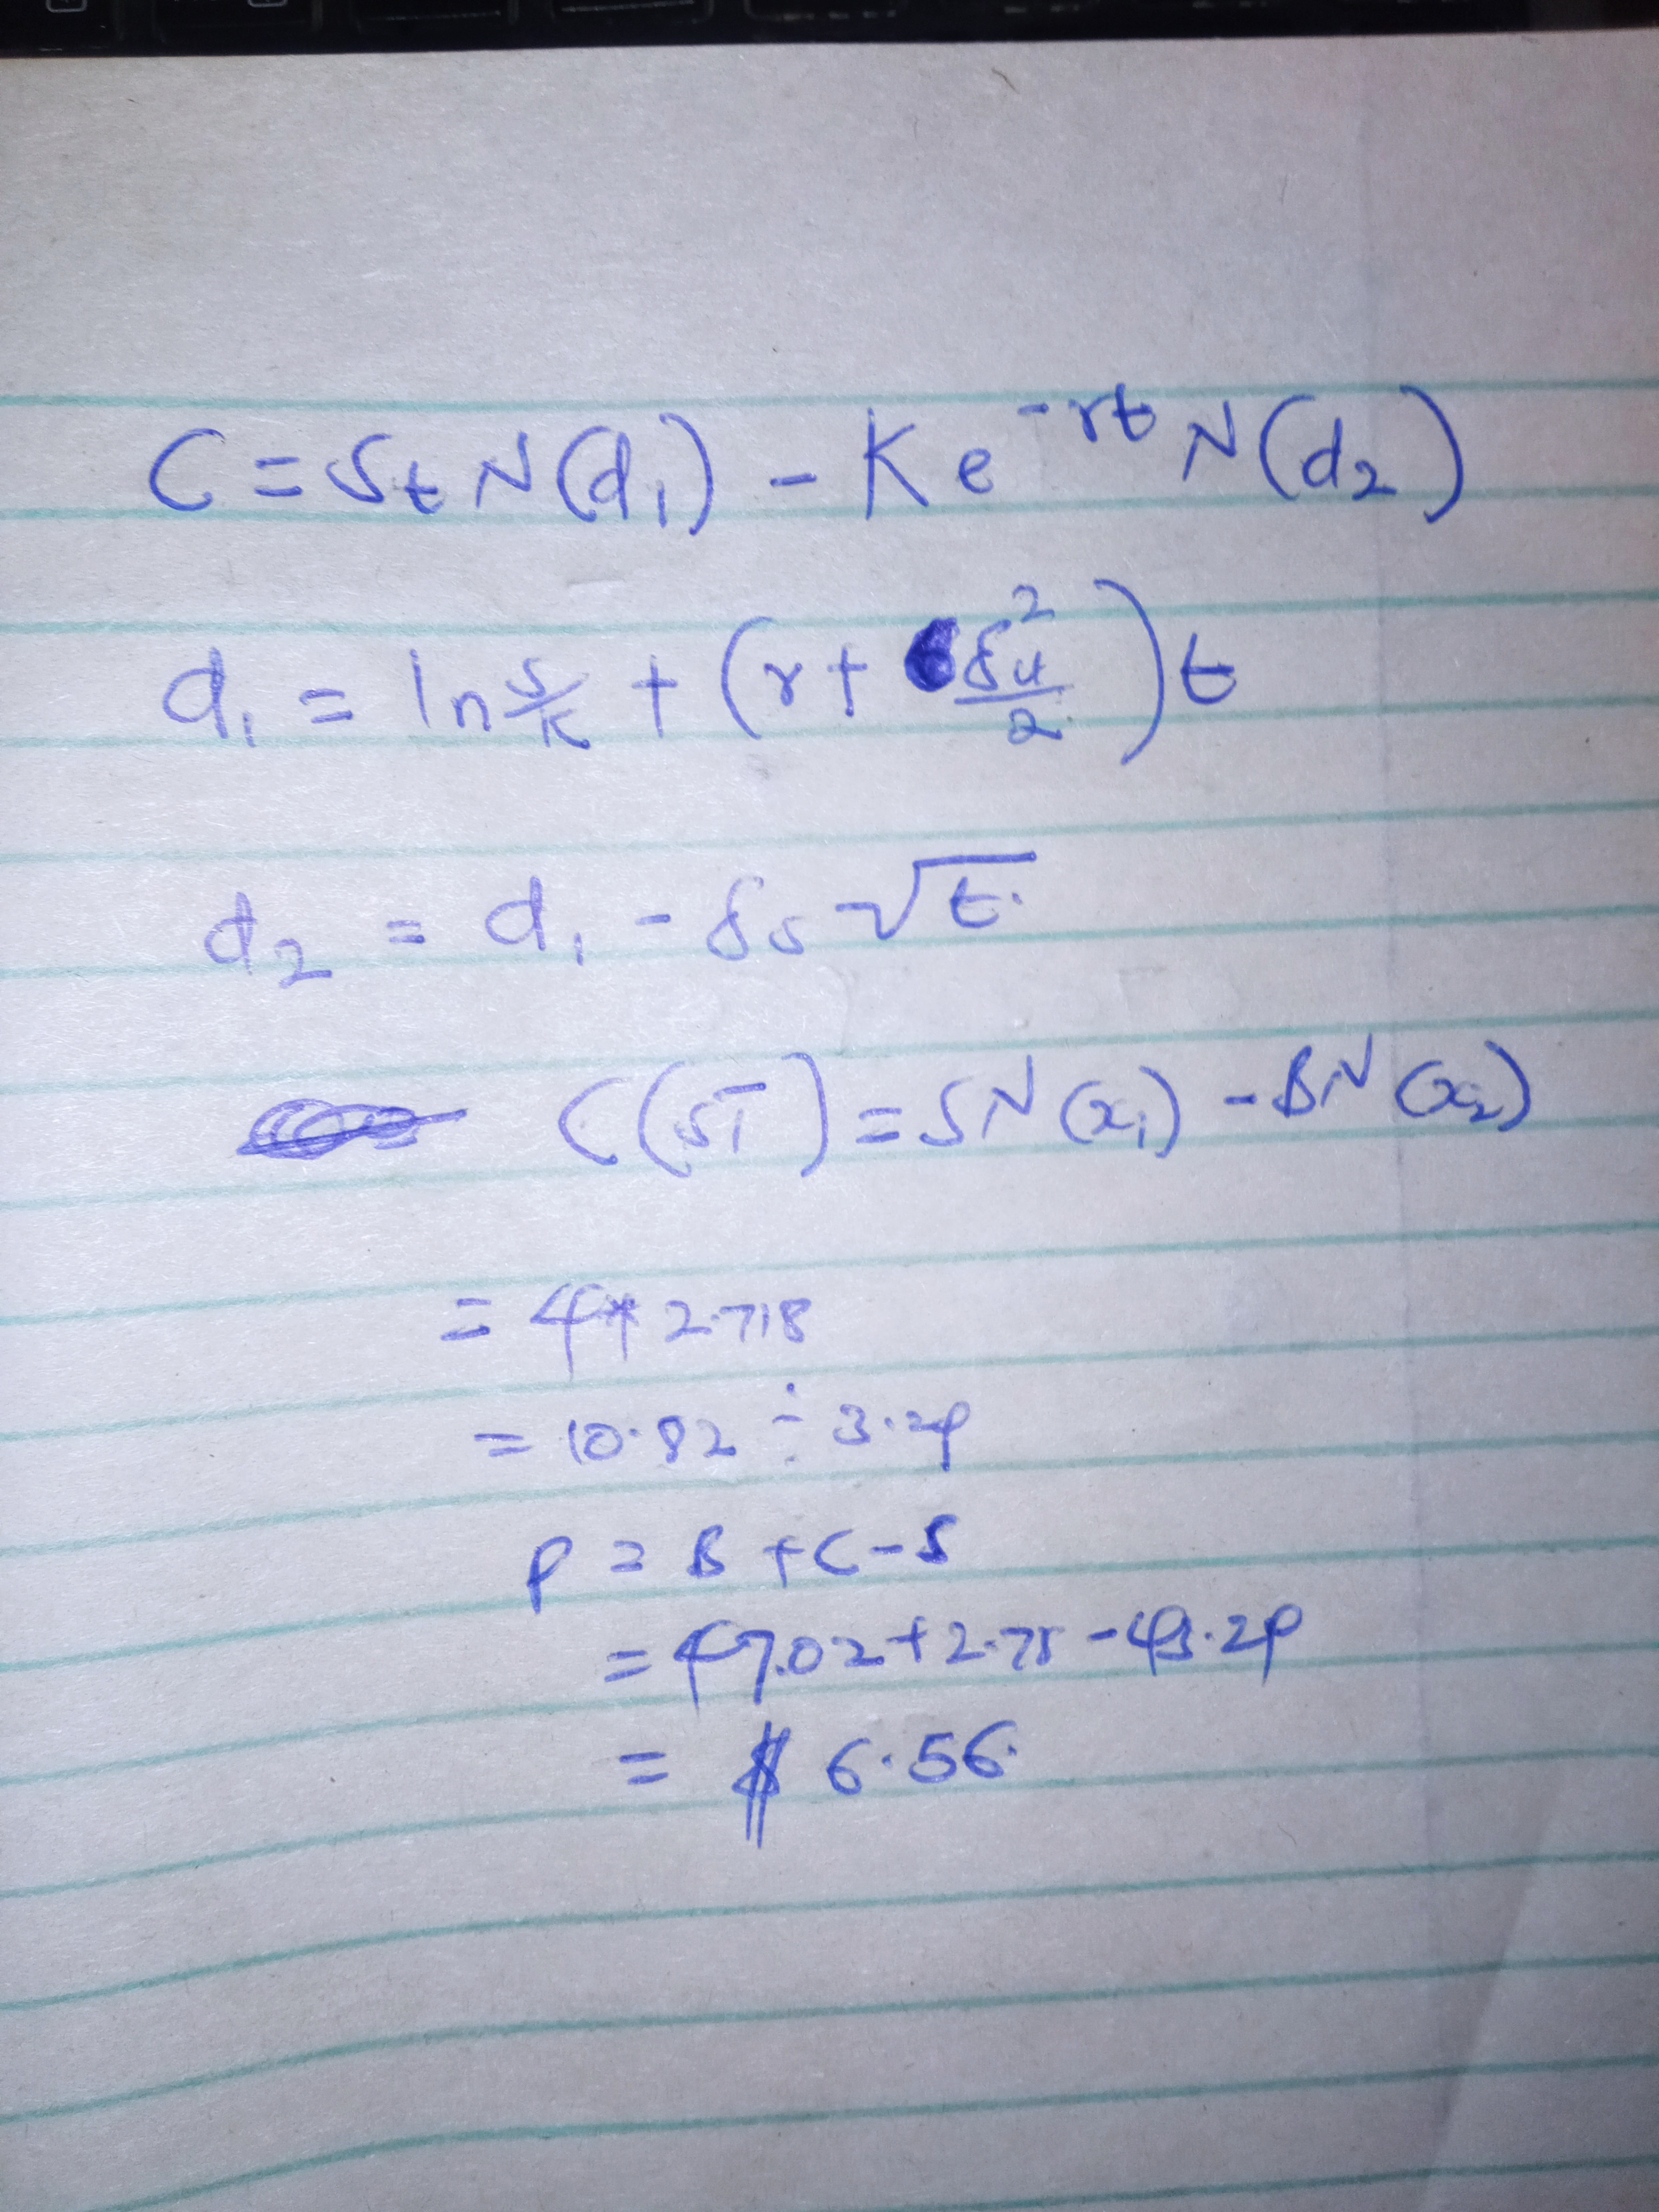 C = St N(d₁) - K e^-rt N(d₂)
d₁ = ln S/K + (r + δu²/2) t
d₂ = d₁ - δs √t.
C(S,T) = SN(x₁) - BN(x₂)
= 4 * 2.718
= 10.82 ÷ 3.24
P = B + C - S
= 47.02 + 2.78 - 43.24
= $ 6.56.